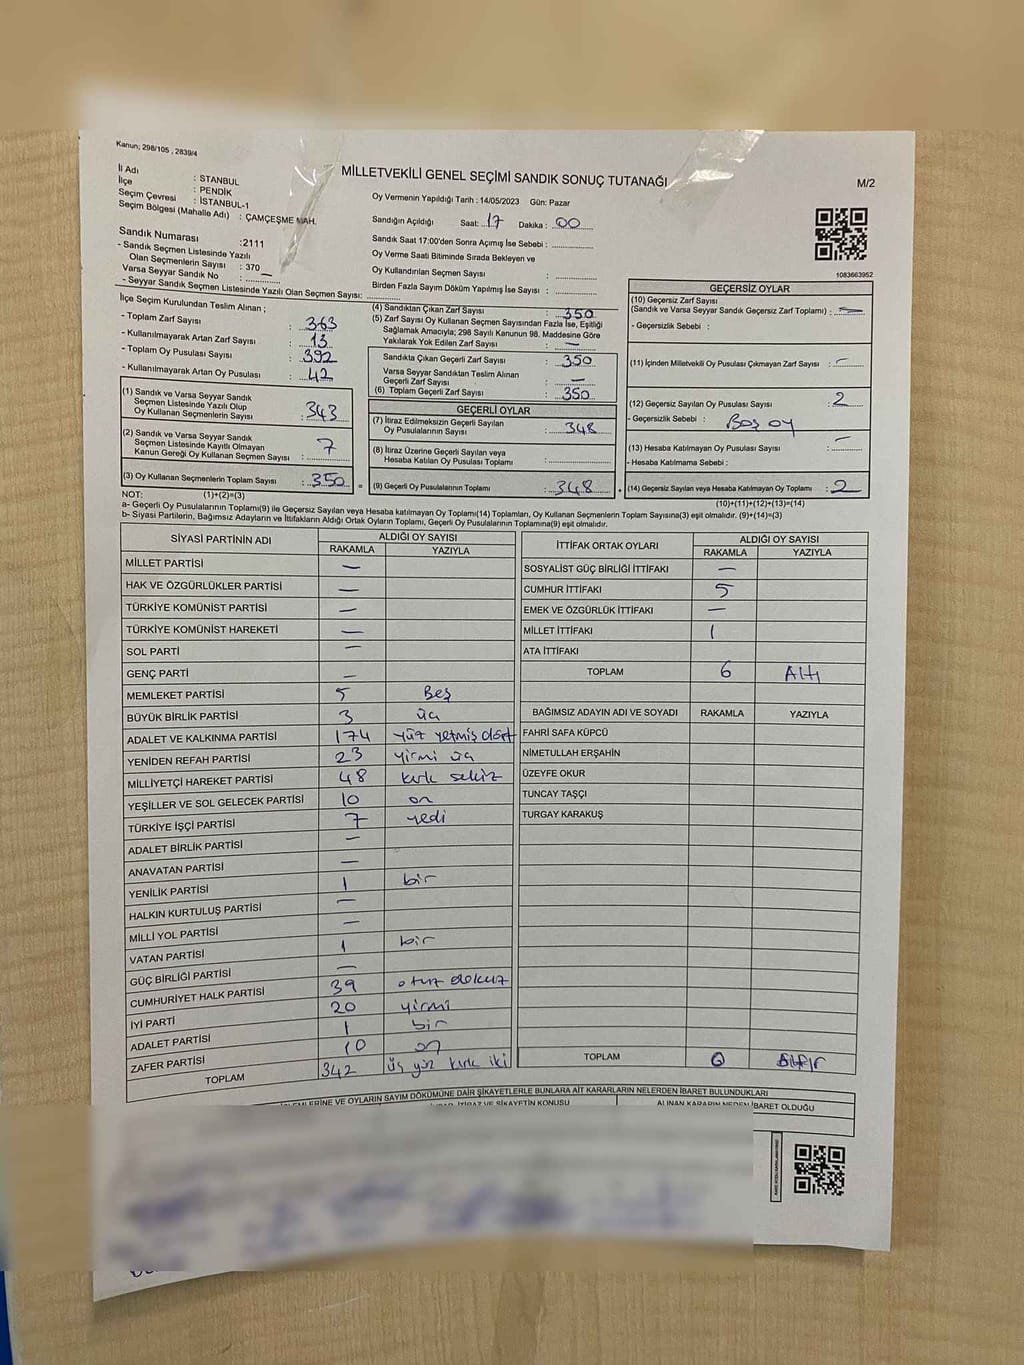 Kanun; 298/105 , 2839/4
MİLLETVEKİLİ GENEL SEÇİMİ SANDIK SONUÇ TUTANAĞI
M/2
İl Adı : STANBUL
İlçe : PENDİK
Seçim Çevresi : İSTANBUL-1
Seçim Bölgesi (Mahalle Adı) : ÇAMÇEŞME MAH.
Sandık Numarası :2111
- Sandık Seçmen Listesinde Yazılı
Olan Seçmenlerin Sayısı : 370
Varsa Seyyar Sandık No : —
- Seyyar Sandık Seçmen Listesinde Yazılı Olan Seçmen Sayısı:
Oy Vermenin Yapıldığı Tarih : 14/05/2023 Gün: Pazar
Sandığın Açıldığı Saat: 17 Dakika : 00
Sandık Saat 17:00'den Sonra Açımış İse Sebebi :
Oy Verme Saati Bitiminde Sırada Bekleyen ve
Oy Kullandırılan Seçmen Sayısı :
Birden Fazla Sayım Döküm Yapılmış İse Sayısı :
1083663952
İlçe Seçim Kurulundan Teslim Alınan ;
- Toplam Zarf Sayısı : 363
- Kullanılmayarak Artan Zarf Sayısı : 13
- Toplam Oy Pusulası Sayısı : 392
- Kullanılmayarak Artan Oy Pusulası : 42
(1) Sandık ve Varsa Seyyar Sandık
Seçmen Listesinde Yazılı Olup
Oy Kullanan Seçmenlerin Sayısı : 343
(2) Sandık ve Varsa Seyyar Sandık
Seçmen Listesinde Kayıtlı Olmayan
Kanun Gereği Oy Kullanan Seçmen Sayısı : 7
(3) Oy Kullanan Seçmenlerin Toplam Sayısı : 350 =
(4) Sandıktan Çıkan Zarf Sayısı : 350
(5) Zarf Sayısı Oy Kullanan Seçmen Sayısından Fazla İse, Eşitliği
Sağlamak Amacıyla; 298 Sayılı Kanunun 98. Maddesine Göre
Yakılarak Yok Edilen Zarf Sayısı : —
Sandıkta Çıkan Geçerli Zarf Sayısı : 350
Varsa Seyyar Sandıktan Teslim Alınan
Geçerli Zarf Sayısı : —
(6) Toplam Geçerli Zarf Sayısı : 350
GEÇERLİ OYLAR
(7) İtiraz Edilmeksizin Geçerli Sayılan
Oy Pusulalarının Sayısı : 348
(8) İtiraz Üzerine Geçerli Sayılan veya
Hesaba Katılan Oy Pusulası Toplamı :
(9) Geçerli Oy Pusulalarının Toplamı : 348 +
GEÇERSİZ OYLAR
(10) Geçersiz Zarf Sayısı
(Sandık ve Varsa Seyyar Sandık Geçersiz Zarf Toplamı) : —
- Geçersizlik Sebebi :
(11) İçinden Milletvekili Oy Pusulası Çıkmayan Zarf Sayısı : —
(12) Geçersiz Sayılan Oy Pusulası Sayısı : 2
- Geçersizlik Sebebi : Boş oy
(13) Hesaba Katılmayan Oy Pusulası Sayısı : —
- Hesaba Katılmama Sebebi :
(14) Geçersiz Sayılan veya Hesaba Katılmayan Oy Toplamı : 2
NOT: (1)+(2)=(3) (10)+(11)+(12)+(13)=(14)
a- Geçerli Oy Pusulalarının Toplamı(9) ile Geçersiz Sayılan veya Hesaba katılmayan Oy Toplamı(14) Toplamları, Oy Kullanan Seçmenlerin Toplam Sayısına(3) eşit olmalıdır. (9)+(14)=(3)
b- Siyasi Partilerin, Bağımsız Adayların ve İttifakların Aldığı Ortak Oyların Toplamı, Geçerli Oy Pusulalarının Toplamına(9) eşit olmalıdır.
SİYASİ PARTİNİN ADI ALDIĞI OY SAYISI
RAKAMLA YAZIYLA
MİLLET PARTİSİ —
HAK VE ÖZGÜRLÜKLER PARTİSİ —
TÜRKİYE KOMÜNİST PARTİSİ —
TÜRKİYE KOMÜNİST HAREKETİ —
SOL PARTİ —
GENÇ PARTİ —
MEMLEKET PARTİSİ 5 Beş
BÜYÜK BİRLİK PARTİSİ 3 üç
ADALET VE KALKINMA PARTİSİ 174 yüz yetmiş dört
YENİDEN REFAH PARTİSİ 23 yirmi üç
MİLLİYETÇİ HAREKET PARTİSİ 48 kırk sekiz
YEŞİLLER VE SOL GELECEK PARTİSİ 10 on
TÜRKİYE İŞÇİ PARTİSİ 7 yedi
ADALET BİRLİK PARTİSİ —
ANAVATAN PARTİSİ —
YENİLİK PARTİSİ 1 bir
HALKIN KURTULUŞ PARTİSİ —
MİLLİ YOL PARTİSİ —
VATAN PARTİSİ 1 bir
GÜÇ BİRLİĞİ PARTİSİ —
CUMHURİYET HALK PARTİSİ 39 otuz dokuz
İYİ PARTİ 20 yirmi
ADALET PARTİSİ 1 bir
ZAFER PARTİSİ 10 on
TOPLAM 342 üç yüz kırk iki
İTTİFAK ORTAK OYLARI ALDIĞI OY SAYISI
RAKAMLA YAZIYLA
SOSYALİST GÜÇ BİRLİĞİ İTTİFAKI —
CUMHUR İTTİFAKI 5
EMEK VE ÖZGÜRLÜK İTTİFAKI —
MİLLET İTTİFAKI 1
ATA İTTİFAKI
TOPLAM 6 Altı
BAĞIMSIZ ADAYIN ADI VE SOYADI RAKAMLA YAZIYLA
FAHRİ SAFA KÜPCÜ
NİMETULLAH ERŞAHİN
ÜZEYFE OKUR
TUNCAY TAŞÇI
TURGAY KARAKUŞ
TOPLAM 0
OYLARIN SAYIM DÖKÜMÜNE DAİR ŞİKAYETLERLE BUNLARA AİT KARARLARIN NELERDEN İBARET BULUNDUKLARI
İTİRAZ VE ŞİKAYETİN KONUSU ALINAN KARARIN NEDEN İBARET OLDUĞU